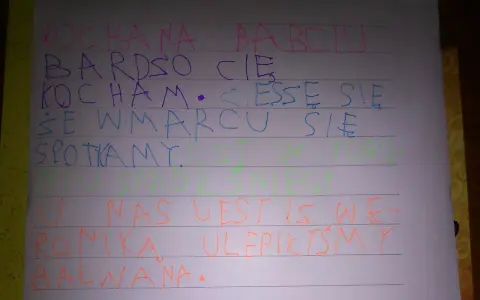 KOCHANA BABCIU
BARDSO CIĘ
KOCHAM. CIESSĘ SIĘ
SE WMARCU SIĘ
SPOTKAMY.
U NAS JEST IS WE-
RONIKĄ ULEPILIŚMY
BAŁWANA.